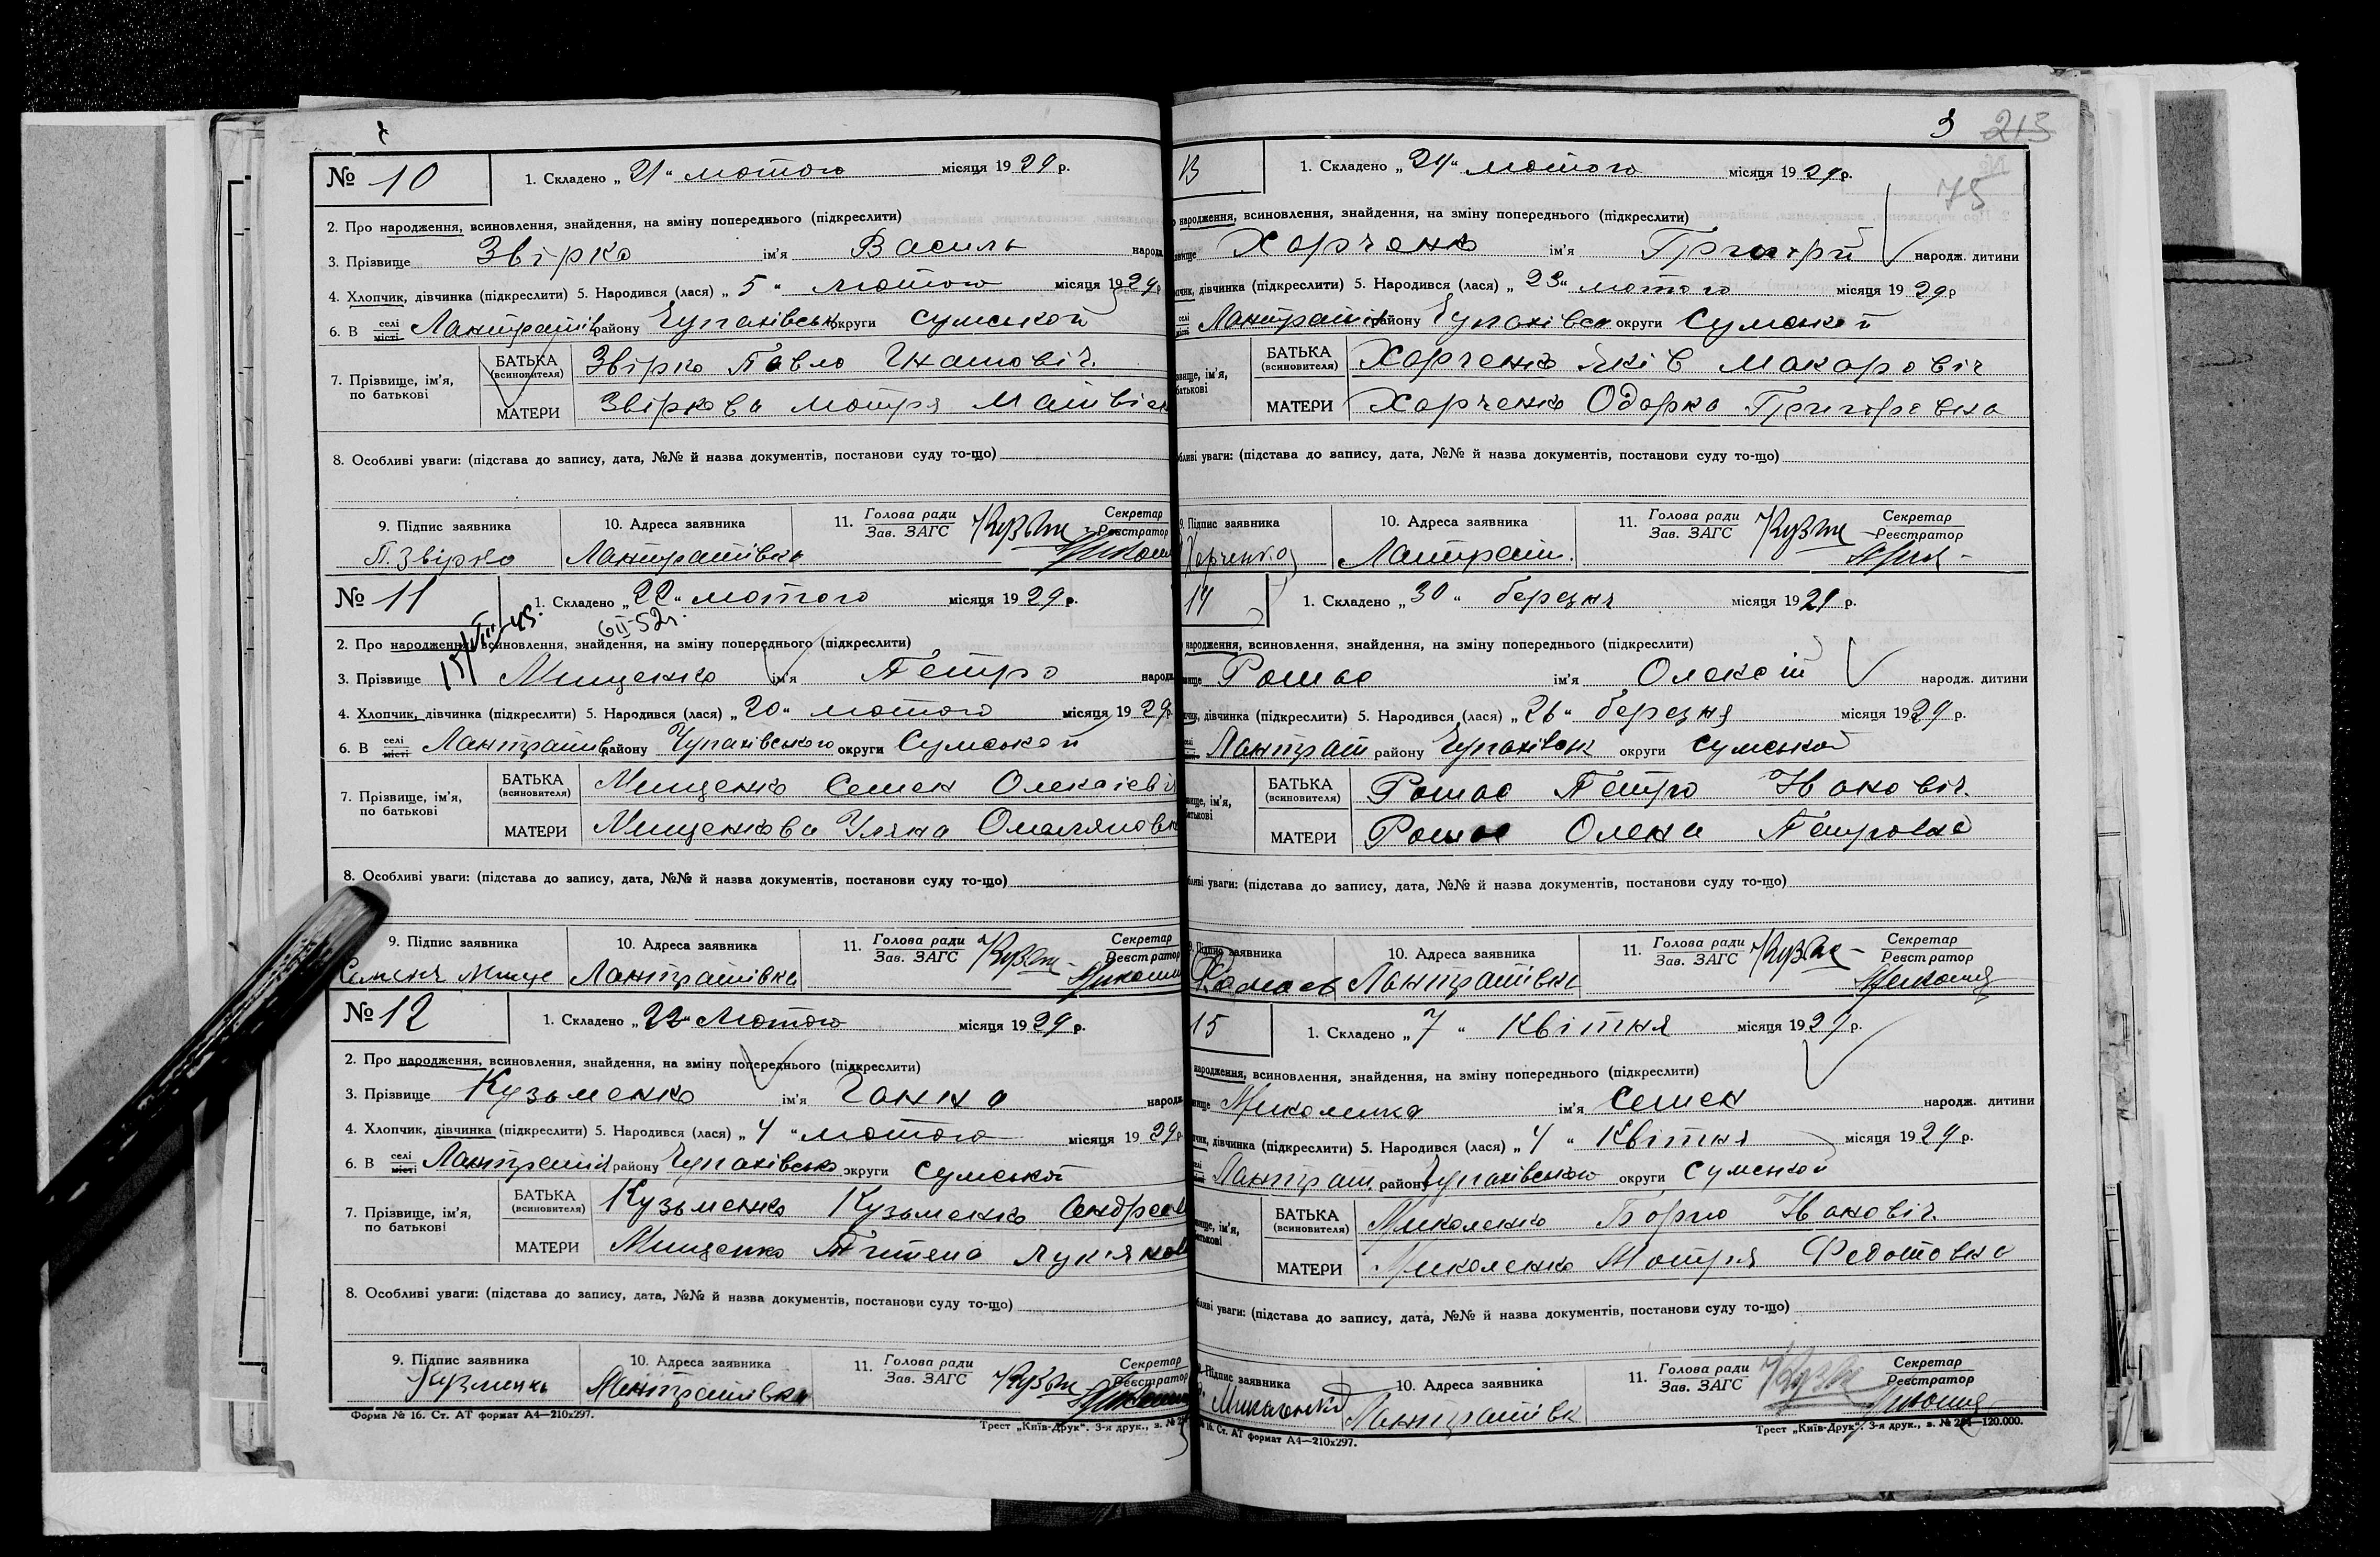 № 10
1. Складено „21“ лютого місяця 1929 р.
2. Про народження, всиновлення, знайдення, на зміну попереднього (підкреслити)
3. Прізвище Звірко ім'я Василь народж
4. Хлопчик, дівчинка (підкреслити) 5. Народився (лася) „5“ лютого місяця 1929 р
6. В селі місті Лантратів району Чупахівськ округи Сумської
7. Прізвище, ім'я, по батькові
БАТЬКА (всиновителя) Звірко Павло Гнатовіч.
МАТЕРИ Звіркова Мотря Матвієв
8. Особливі уваги: (підстава до запису, дата, №№ й назва документів, постанови суду то-що)
9. Підпис заявника 10. Адреса заявника 11. Голова ради Зав. ЗАГС Секретар Реєстратор
П. Звірко Лантратівка
№ 11
1. Складено „22“ лютого місяця 1929 р.
6 II-52г.
2. Про народження, всиновлення, знайдення, на зміну попереднього (підкреслити)
3. Прізвище Мищенко ім'я Петро народж
4. Хлопчик, дівчинка (підкреслити) 5. Народився (лася) „20“ лютого місяця 1929р
6. В селі місті Лантратів району Чупахівського округи Сумської
7. Прізвище, ім'я, по батькові
БАТЬКА (всиновителя) Мищенко Семен Олексієвіч
МАТЕРИ Мищенкова Уляна Омеляновн
8. Особливі уваги: (підстава до запису, дата, №№ й назва документів, постанови суду то-що)
9. Підпис заявника 10. Адреса заявника 11. Голова ради Зав. ЗАГС Секретар Реєстратор
Семенъ Мище Лантратівка
№ 12
1. Складено „22“ Лютого місяця 1929 р.
2. Про народження, всиновлення, знайдення, на зміну попереднього (підкреслити)
3. Прізвище Кузьменко ім'я Ганна народж
4. Хлопчик, дівчинка (підкреслити) 5. Народився (лася) „4“ лютого місяця 1929р
6. В селі місті Лантратів району Чупахівсько округи Сумської
7. Прізвище, ім'я, по батькові
БАТЬКА (всиновителя) Кузьменко Кузьменко Андреев
МАТЕРИ Мищенко Лук'янов
8. Особливі уваги: (підстава до запису, дата, №№ й назва документів, постанови суду то-що)
9. Підпис заявника 10. Адреса заявника 11. Голова ради Зав. ЗАГС Секретар Реєстратор
Кузменко Лантратівка
Форма № 16. Ст. АТ формат А4—210х297.
Трест „Київ-Друк“. 3-я друк., з. №
3 213
75
13
1. Складено „24“ лютого місяця 1929р.
народження, всиновлення, знайдення, на зміну попереднього (підкреслити)
Харченко ім'я Григорій народж. дитини
дівчинка (підкреслити) 5. Народився (лася) „23“ лютого місяця 1929р
селі місті Лантратів району Чупахівск округи Сумської
БАТЬКА (всиновителя) Харченко Яків Макаровіч
МАТЕРИ Харченко Одарка Григоревна
уваги: (підстава до запису, дата, №№ й назва документів, постанови суду то-що)
9. Підпис заявника 10. Адреса заявника 11. Голова ради Зав. ЗАГС Секретар Реєстратор
Харченко Лантрат.
14
1. Складено „30“ березня місяця 1929 р.
народження, всиновлення, знайдення, на зміну попереднього (підкреслити)
Ромас ім'я Олексій народж. дитини
дівчинка (підкреслити) 5. Народився (лася) „26“ березня місяця 1929 р.
Лантрат району Чупахівськ округи Сумської
БАТЬКА (всиновителя) Ромас Петро Івановіч.
МАТЕРИ Ромас Олена Петровна
уваги: (підстава до запису, дата, №№ й назва документів, постанови суду то-що)
9. Підпис заявника 10. Адреса заявника 11. Голова ради Зав. ЗАГС Секретар Реєстратор
Ромасъ Лантратівка
15
1. Складено „7“ Квітня місяця 1929 р.
народження, всиновлення, знайдення, на зміну попереднього (підкреслити)
ім'я Семен народж. дитини
дівчинка (підкреслити) 5. Народився (лася) „4“ Квітня місяця 1929 р.
Лантрат. району Чупахівського округи Сумської
БАТЬКА (всиновителя) Миколенко Івановіч.
МАТЕРИ Миколенко Мотря Федотовна
уваги: (підстава до запису, дата, №№ й назва документів, постанови суду то-що)
9. Підпис заявника 10. Адреса заявника 11. Голова ради Зав. ЗАГС Секретар Реєстратор
Лантратівк
16. Ст. АТ формат А4—210х297.
Трест „Київ-Друк“. 3-я друк., з. № 120.000.